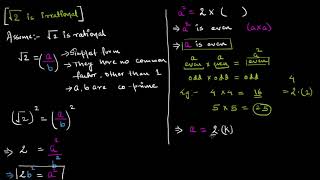 [√2 is irrational]
Assume:- √2 is rational
√2 = (a/b) → Simplest form
→ They have no common
factor, other than 1
→ a, b are co-prime
(√2)² = (a/b)²
⇒ 2 = a²/b²
⇒ 2b² = a²
a² = 2 × ( )
⇒ a² is even (a×a)
⇒ a is even
a even × a even = a² even
odd × odd = odd
Eg:- 4 × 4 = 16
5 × 5 = 25
4 = 2·(2)
⇒ a = 2·(k)